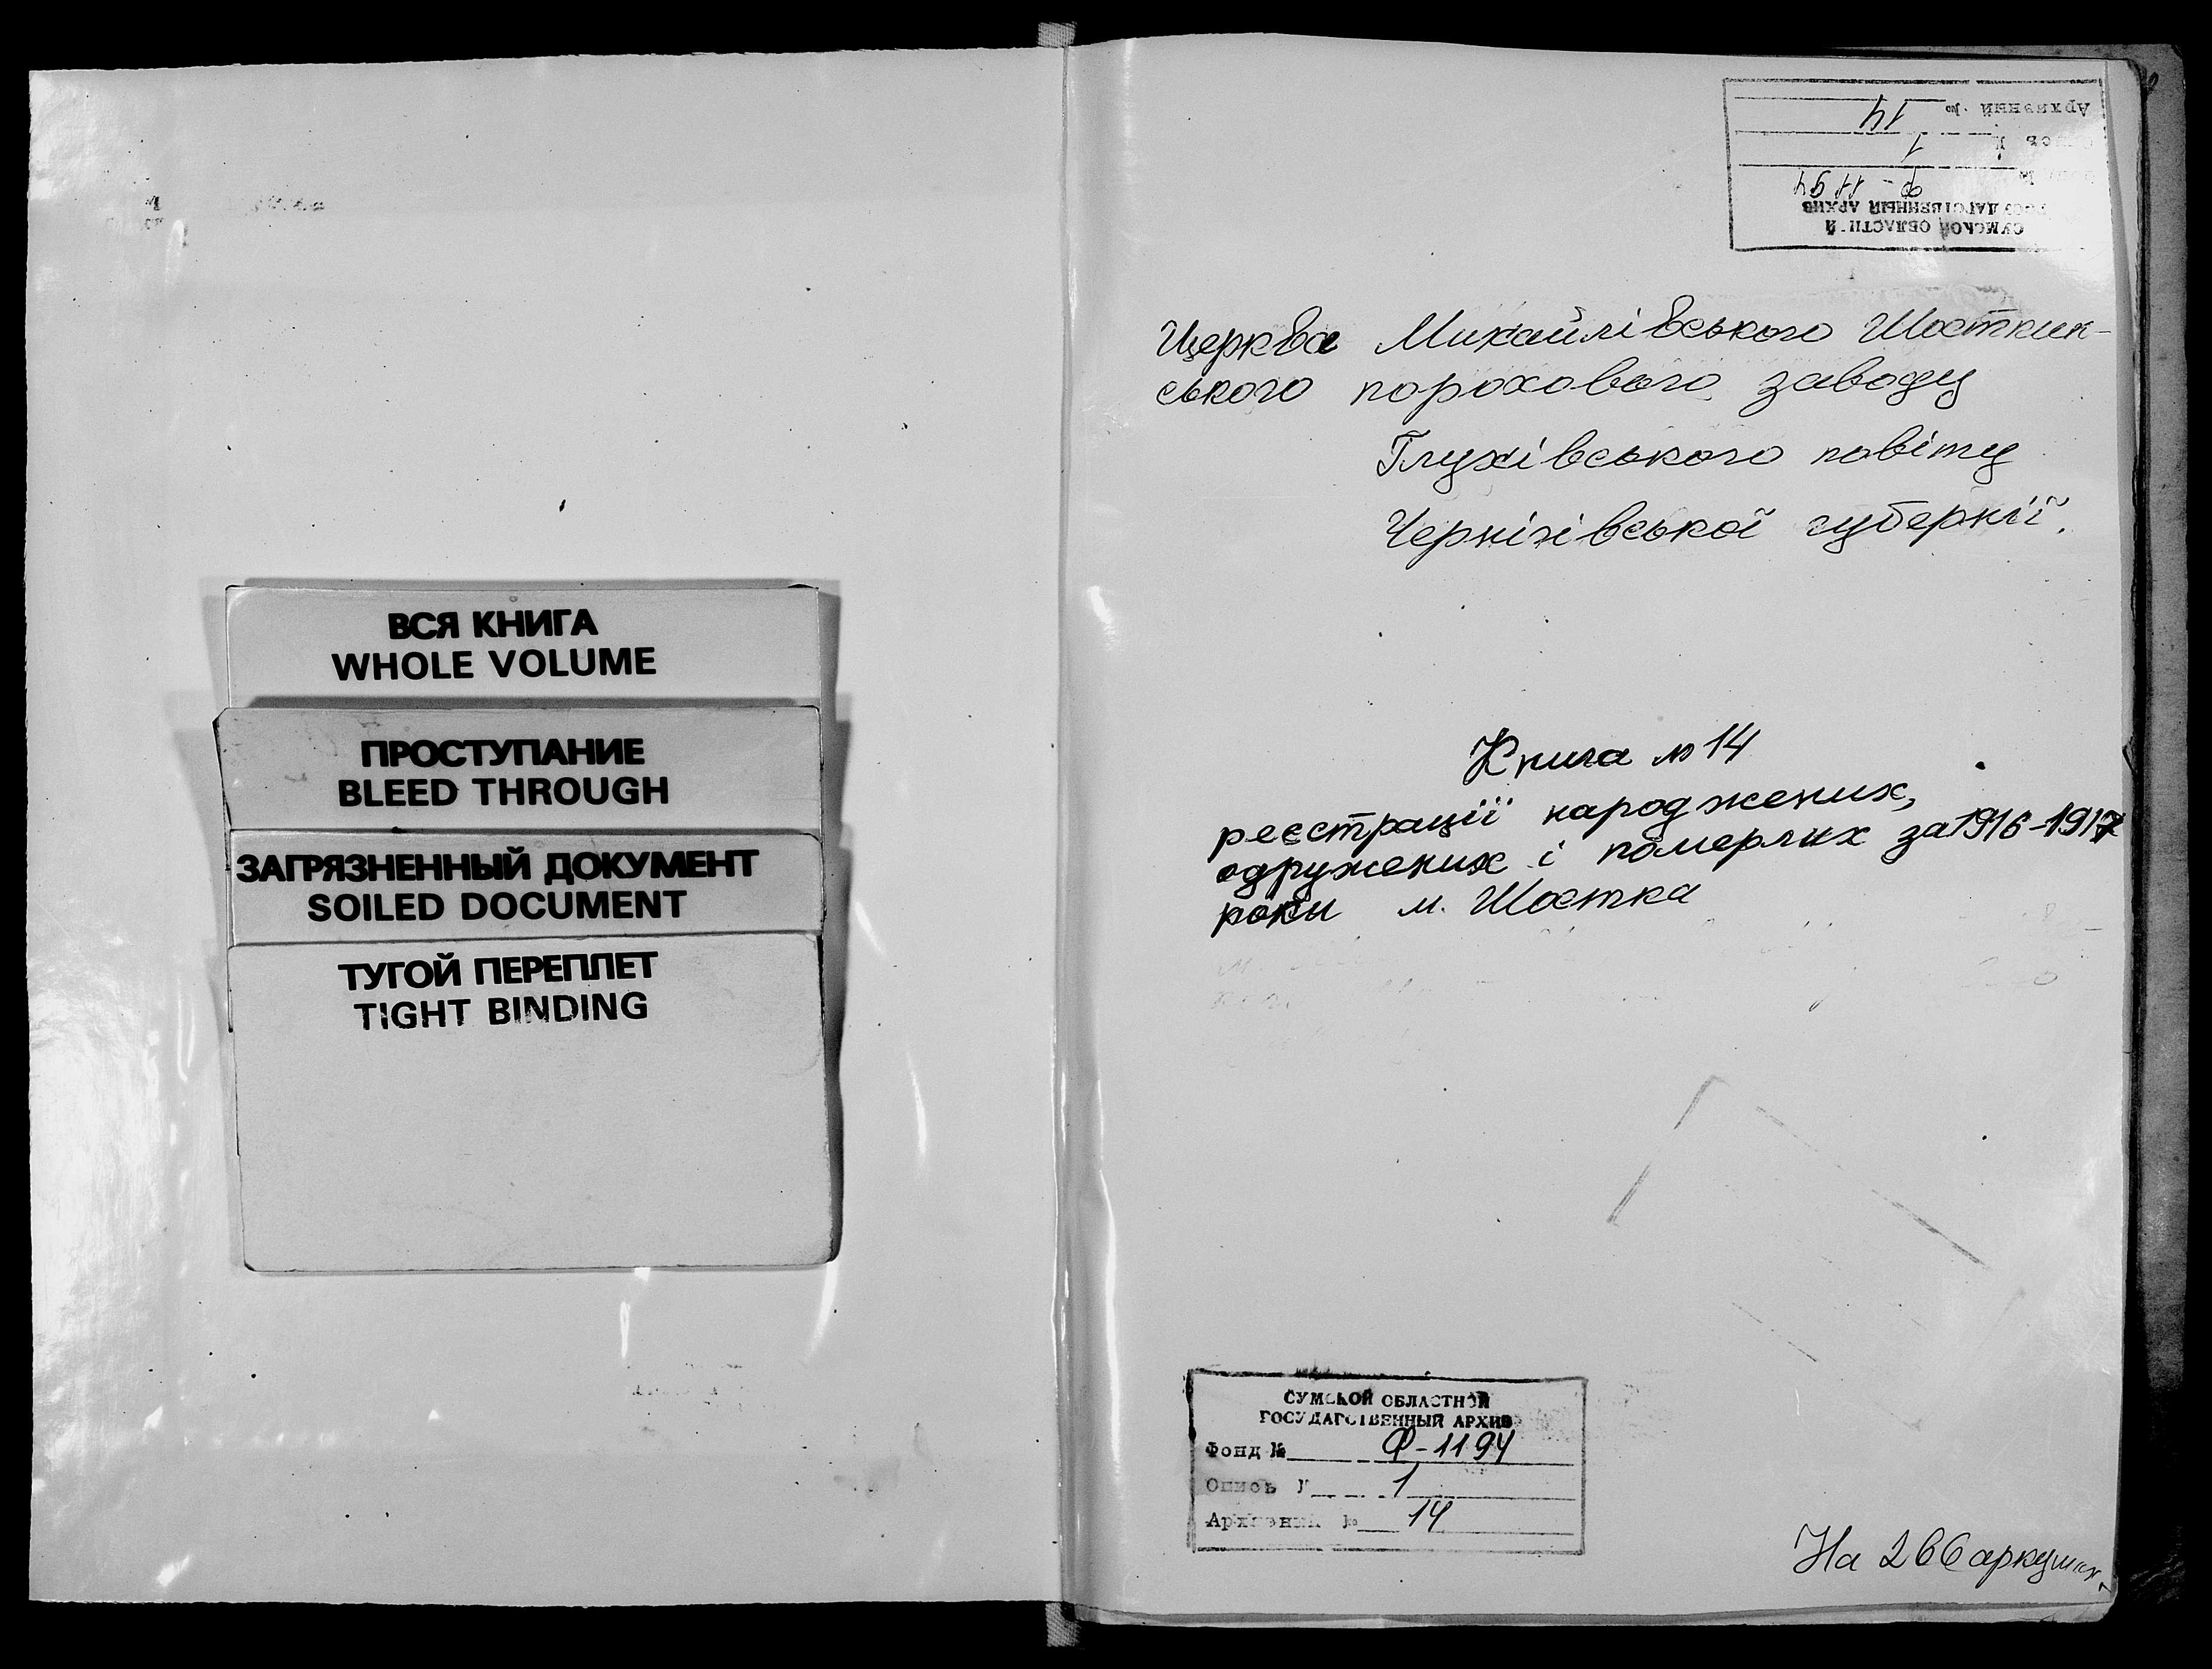 ВСЯ КНИГА
WHOLE VOLUME
ПРОСТУПАНИЕ
BLEED THROUGH
ЗАГРЯЗНЕННЫЙ ДОКУМЕНТ
SOILED DOCUMENT
ТУГОЙ ПЕРЕПЛЕТ
TIGHT BINDING
СУМСКОЙ ОБЛАСТНОЙ
ГОСУДАРСТВЕННЫЙ АРХИВ
Ф-1194
1
Архивный № 14
Церква Михайлівського Шосткин-
ського порохового заводу
Глухівського повіту
Чернігівської губернії.
Книга № 14
реєстрації народжених,
одружених і померлих за 1916-1917
роки м. Шостка
СУМСКОЙ ОБЛАСТНОЙ
ГОСУДАРСТВЕННЫЙ АРХИВ
Фонд № Ф-1194
Опись № 1
Архивный № 14
На 266 аркушах